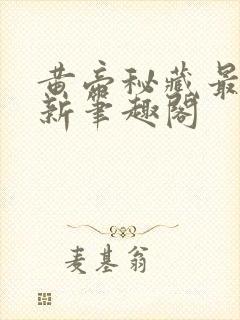 黄帝秘藏 最
新笔趣阁
麦基翁